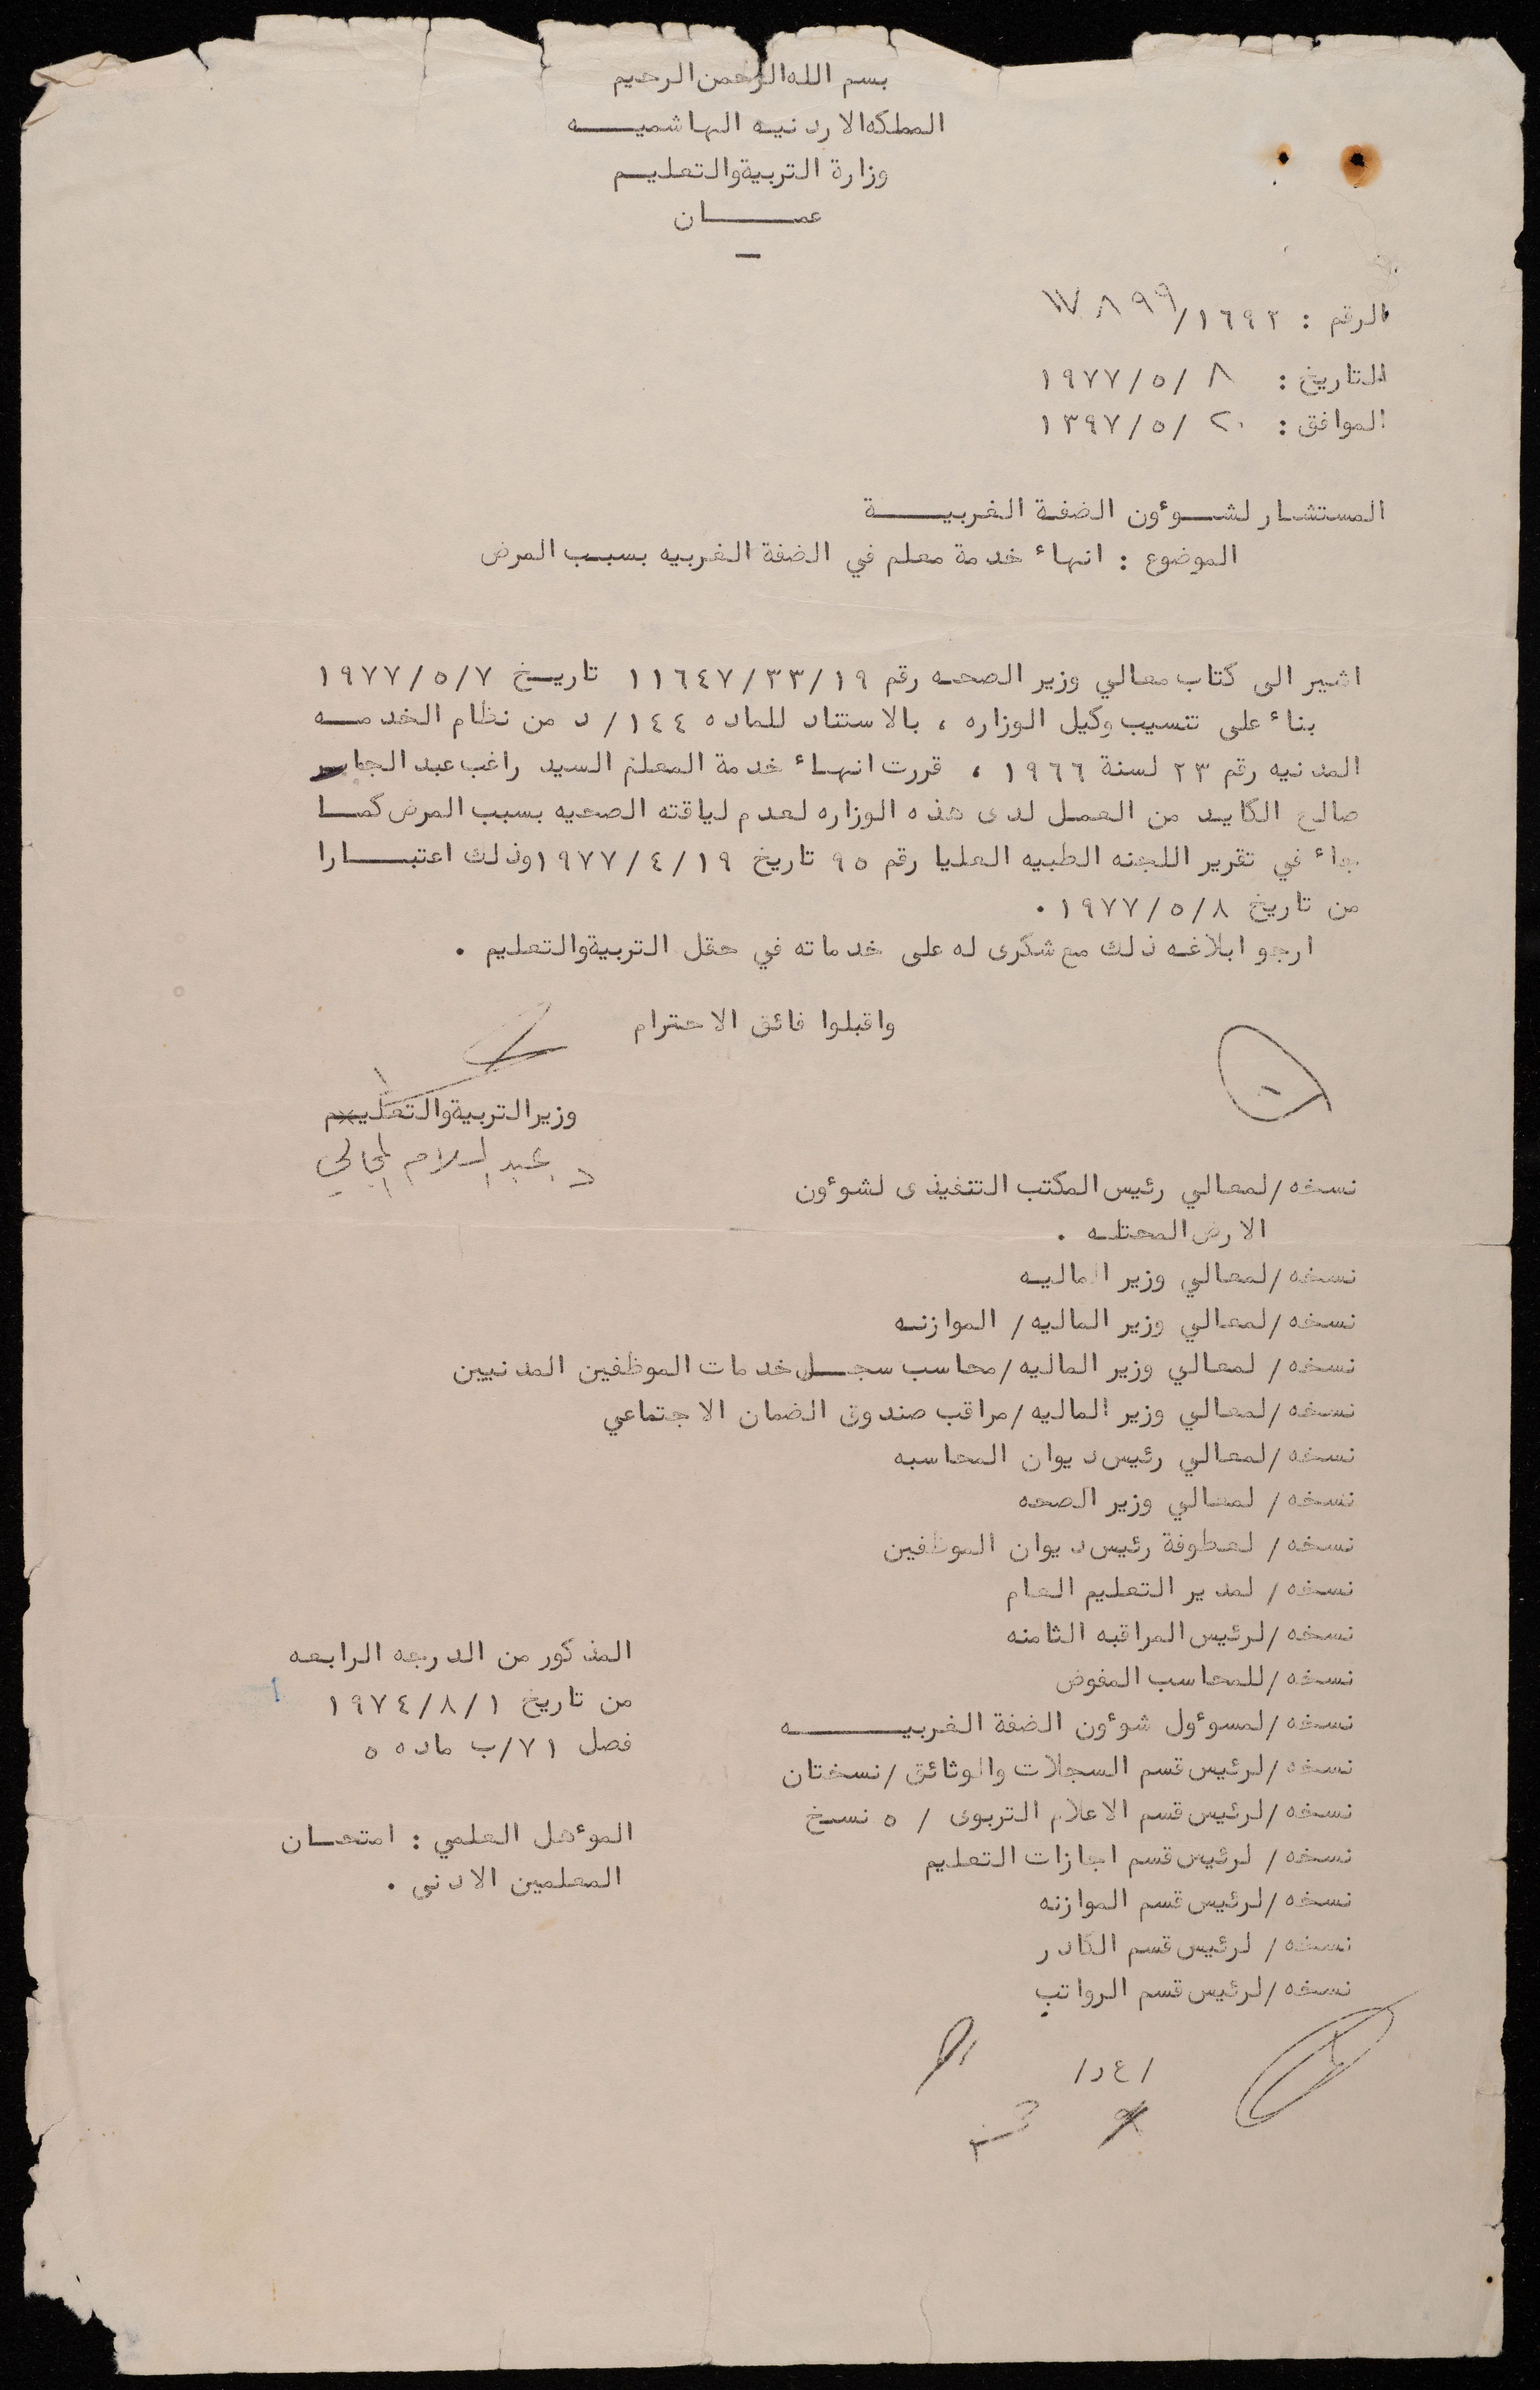 بسم الله الرحمن الرحيم
المملكه الاردنيه الهاشميـــه
وزارة التربية والتعليـم
عمــــان
الرقم : ١٦٩٣/١٧٨٩٩
التاريخ : ٨ /٥/١٩٧٧
الموافق : ٢٠ /٥/١٣٩٧
المستشار لشــوءون الضفة الغربيــــة
الموضوع : انهاء خدمة معلم في الضفة الغربيه بسبب المرض
اشير الى كتاب معالي وزير الصحه رقم ١١٦٤٧/٣٣/١٩ تاريخ ١٩٧٧/٥/٧
بناء على تنسيب وكيل الوزاره ، بالاستناد للماده ١٤٤/د من نظام الخدمــه
المدنيه رقم ٢٣ لسنة ١٩٦٦ ، قررت انهاء خدمة المعلم السيد راغب عبد الجابر
صالح الكايد من العمل لدى هذه الوزاره لعدم لياقته الصحيه بسبب المرض كمـا
جاء في تقرير اللجنه الطبيه العليا رقم ٩٥ تاريخ ١٩٧٧/٤/١٩ وذلك اعتبــارا
من تاريخ ١٩٧٧/٥/٨ .
ارجو ابلاغه ذلك مع شكرى له على خدماته في حقل التربية والتعليم .
واقبلوا فائق الاحترام
وزير التربية والتعليـم
د. عبد السلام المجالي
نسخه /لمعالي رئيس المكتب التنفيذى لشوءون
الارض المحتلـه .
نسخه /لمعالي وزير الماليـه
نسخه /لمعالي وزير الماليه / الموازنـه
نسخه / لمعالي وزير الماليه /محاسب سجــل خدمات الموظفين المدنيين
نسخه /لمعالي وزير الماليه /مراقب صندوق الضمان الاجتماعي
نسخه /لمعالي رئيس ديوان المحاسبه
نسخه / لمعالي وزير الصحه
نسخه / لعطوفة رئيس ديوان الموظفين
نسخه / لمدير التعليم العام
نسخه /لرئيس المراقبه الثامنه
نسخه /للمحاسب المفوض
نسخه /لمسوءول شوءون الضفة الغربيـــــه
نسخه /لرئيس قسم السجلات والوثائق /نسختان
نسخه /لرئيس قسم الاعلام التربوى / ٥ نسخ
نسخه / لرئيس قسم اجازات التعليم
نسخه /لرئيس قسم الموازنه
نسخه / لرئيس قسم الكادر
نسخه /لرئيس قسم الرواتب
المذكور من الدرجه الرابعه
من تاريخ ١٩٧٤/٨/١
فصل ٧١/ب ماده ٥
الموءهل العلمي : امتحـان
المعلمين الادنى .
/ع د/